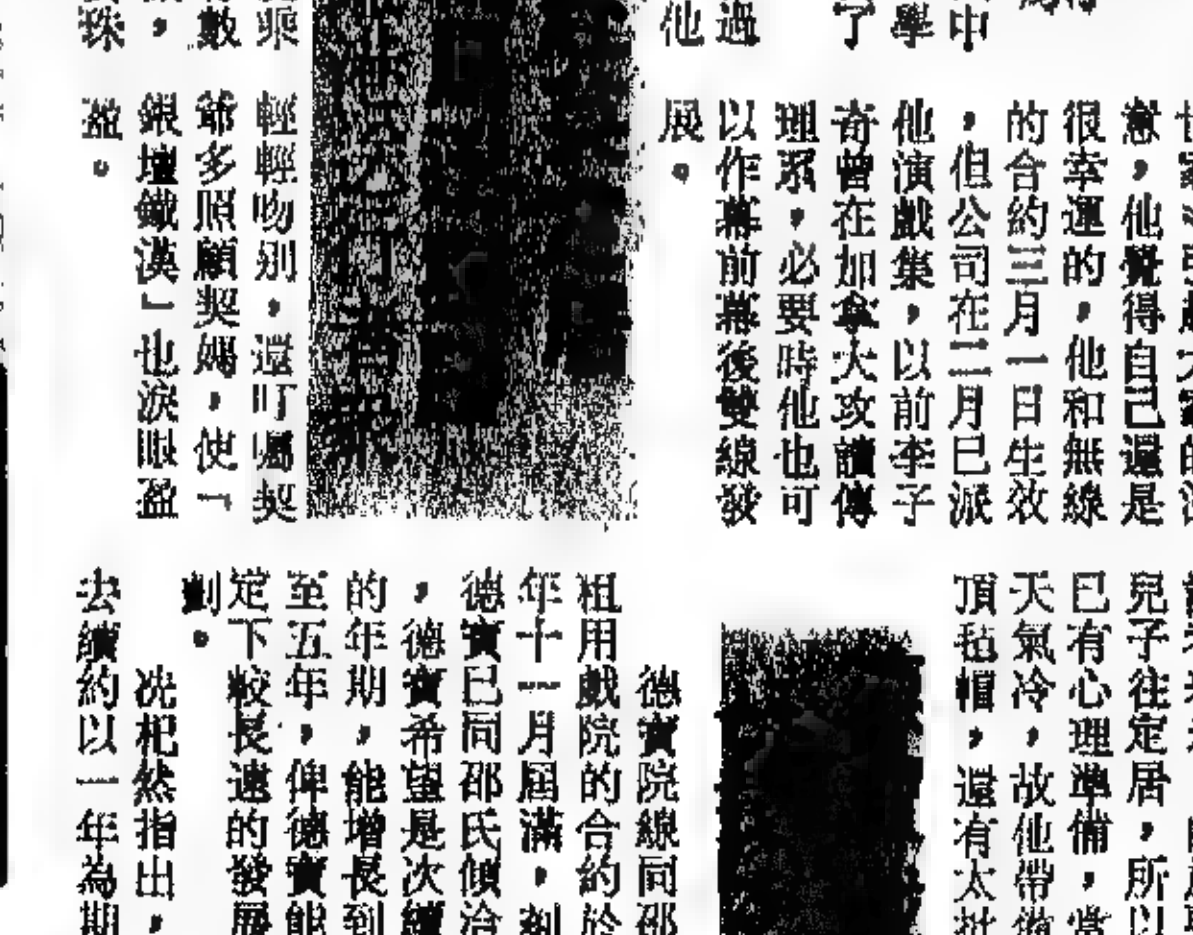 中
學
了
過
他
，他覺得自己還是
很幸運的，他和無線
的合約三月一日生效
，但公司在二月已派
他演戲集，以前李子
奇曾在加拿大攻讀傳
理系，必要時他也可
以作幕前幕後雙線發
展。
乘
數
，
珠
輕輕吻別，還叮囑契
爺多照顧契媽，使「
銀壇鐵漢」也淚眼盈
盈。
兒子往定居，所以
已有心理準備，當
天氣冷，故他帶備
頂毡帽，還有太
德寶院線同邵
租用戲院的合約於
年十一月屆滿，刻
德寶已同邵氏傾洽
，德寶希望是次續
的年期，能增長到
至五年，俾德寶能
定下較長遠的發展
劃。
冼杞然指出，
去續約以一年為期